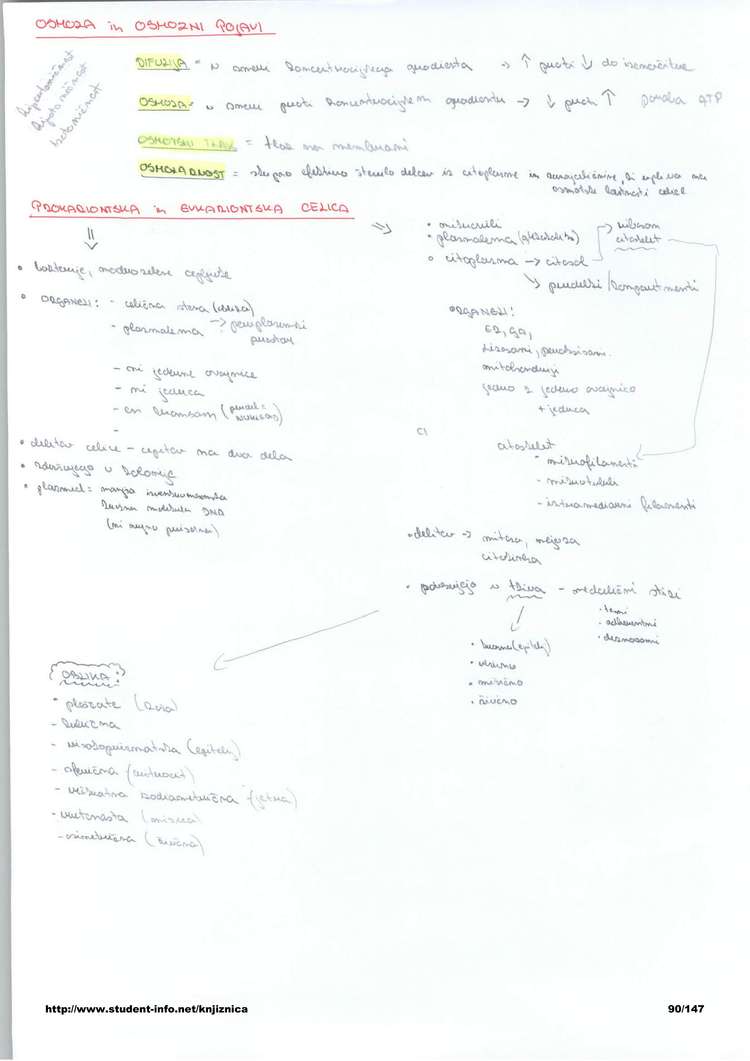 OSMOZA in OSMOZNI POJAVI
hipertoničnost
hipotoničnost
izotoničnost
DIFUZIJA = v smeri koncentracijskega gradienta → ↑ proti ↓ do izenačitve
OSMOZA = v smeri proti koncentracijskem gradientu → ↓ proti ↑ poraba ATP
OSMOTSKI TLAK = tlak na membrani
OSMOLARNOST = skupno efektivno število delcev iz citoplasme in, ki vpliva na
osmotske lastnosti celice
PROKARIONTSKA in EVKARIONTSKA CELICA
• bakterije, modrozelene cepljivke
• ORGANELI: - celična stena
- plasmalema → periplazemski
prostor
- ni jedrne ovojnice
- ni jedrca
- en kromosom
-
• delitev celice - cepitev na dva dela
• združujejo v kolonije
• plazmid = manjša
krožna molekula DNA
(ni nujno prisoten)
⇒ • mikrovili
• plasmalema
• citoplazma → citosol
ribosom
citoskelet
↘ predelki / kompartmenti
ORGANELI:
ER, GA,
lizosomi, peroksisomi
mitohondriji
jedro z jedrno ovojnico
+ jedrca
citoskelet
- mikrofilamenti
- mikrotubuli
- intermediarni filamenti
• delitev → mitoza, mejoza
citokineza
• povezujejo v tkiva - medcelični stiki
• tesni
• adherentni
• dezmosomi
• krovno (epitelij)
• vezivno
• mišično
• živčno
OBLIKA:
- ploščate (koža)
- kubična
- visokoprizmatska (epitelij)
- sferična
- izodiametrična (jetra)
- vretenasta (mišica)
- (živčna)
http://www.student-info.net/knjiznica
90/147